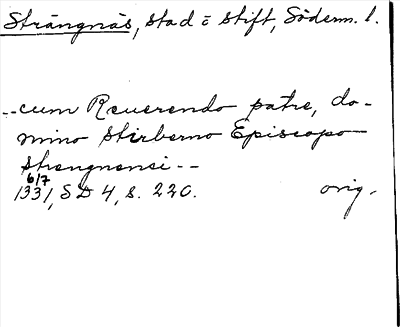 Strängnäs, stad o stift, Söderm. l.
--cum Reuerendo patre, do-
mino Stirberno Episcopo
Strengnensi --
6/7
1331, SD 4, s. 220. orig.